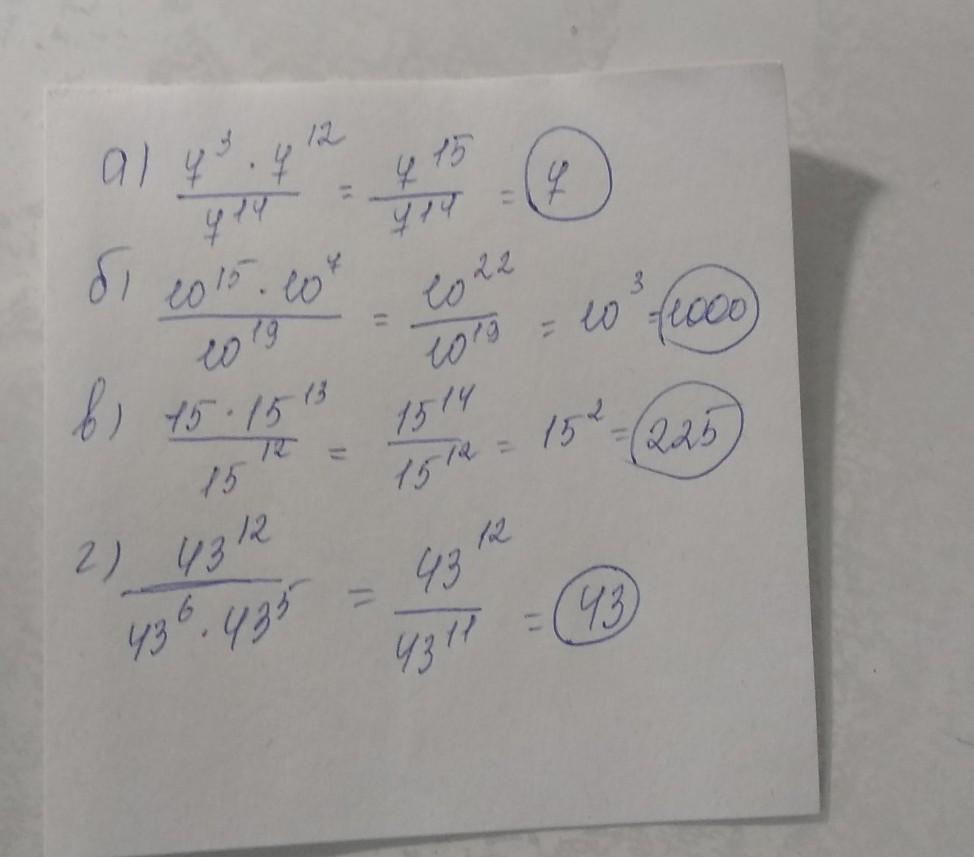 а) 7³ · 7¹² / 7¹⁴ = 7¹⁵ / 7¹⁴ = 7
б) 10¹⁵ · 10⁷ / 10¹⁹ = 10²² / 10¹⁹ = 10³ = 1000
в) 15 · 15¹³ / 15¹² = 15¹⁴ / 15¹² = 15² = 225
г) 43¹² / 43⁶ · 43⁵ = 43¹² / 43¹¹ = 43